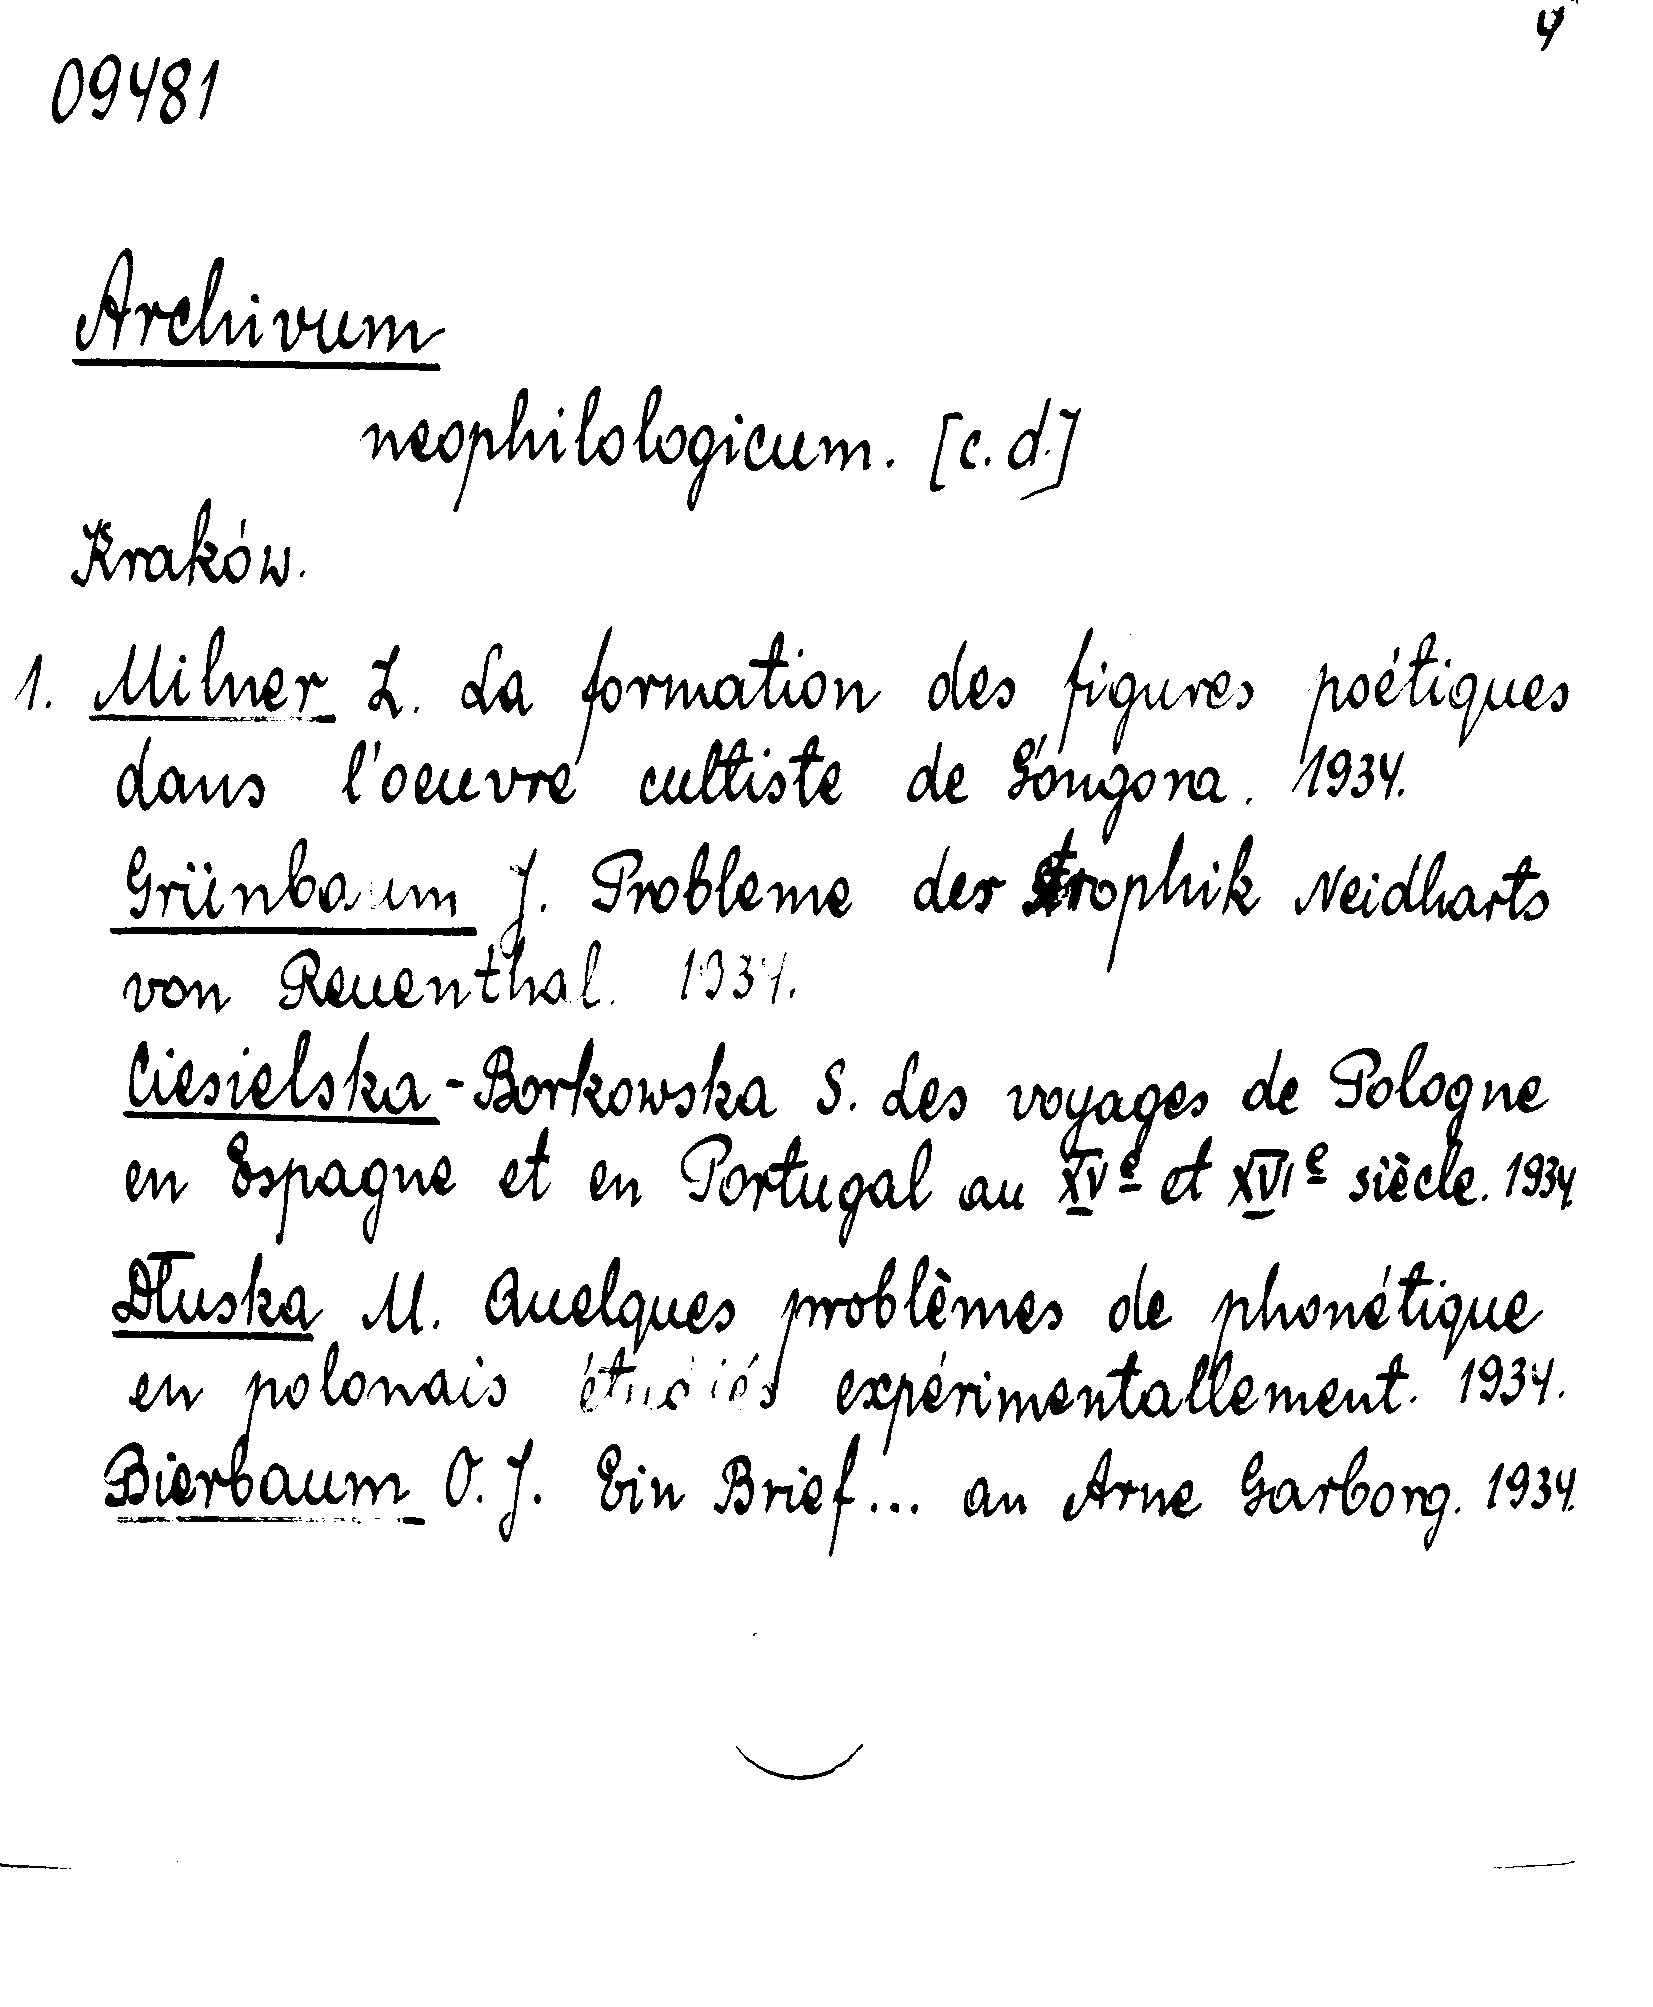 4
09481
Archivum
neophilologicum. [c.d.]
Kraków.
1. Milner Z. La formation des figures poétiques
dans l'oeuvre cultiste de Góngora. 1934.
Grünbaum J. Probleme der Strophik Neidharts
von Reuenthal. 1934.
Ciesielska-Borkowska S. Les voyages de Pologne
en Espagne et en Portugal au XVe et XVIe siècle. 1934
Dłuska M. Quelques problèmes de phonétique
en polonais étudiés expérimentallement. 1934.
Bierbaum O. J. Ein Brief... an Arne Garborg. 1934.